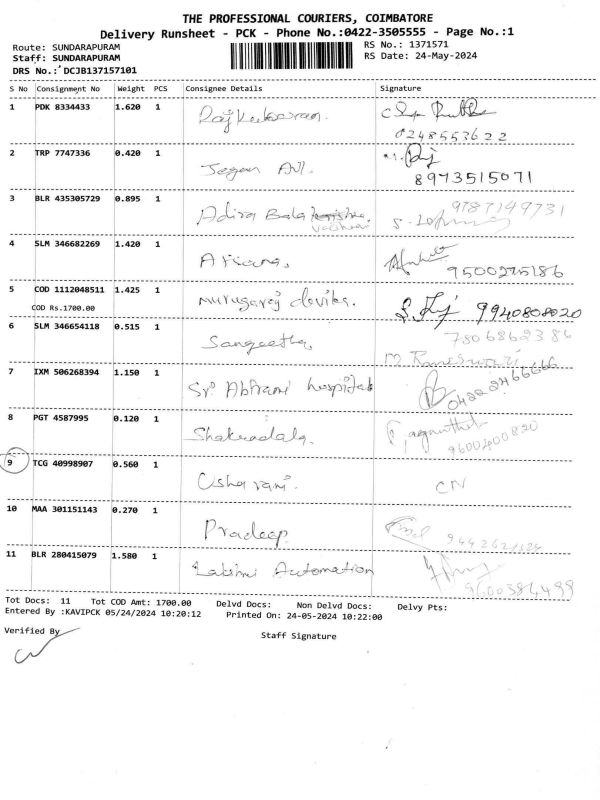 THE PROFESSIONAL COURIERS, COIMBATORE
Delivery Runsheet - PCK - Phone No.:0422-3505555 - Page No.:1
Route: SUNDARAPURAM RS No.: 1371571
Staff: SUNDARAPURAM RS Date: 24-May-2024
DRS No.: DCJB137157101
S No Consignment No Weight PCS Consignee Details Signature
1 PDK 8334433 1.620 1
0248553622
2 TRP 7747336 0.420 1 Jegan
8973515071
3 BLR 435305729 0.895 1 Adira Bala
9787149731
4 SLM 346682269 1.420 1
9500275186
5 COD 1112048511 1.425 1 Murugaraj devika. 9940808020
COD Rs.1700.00
6 SLM 346654118 0.515 1 Sangeetha,
M. Rameshwari
7 IXM 506268394 1.150 1 Sri Abirami hospital
8 PGT 4587995 0.120 1
9600400820
9 TCG 40998907 0.560 1 Usha rani. CN
10 MAA 301151143 0.270 1 Pradeep
11 BLR 280415079 1.580 1 Lakshmi Automation
9600384499
Tot Docs: 11 Tot COD Amt: 1700.00 Delvd Docs: Non Delvd Docs: Delvy Pts:
Entered By :KAVIPCK 05/24/2024 10:20:12 Printed On: 24-05-2024 10:22:00
Verified By Staff Signature